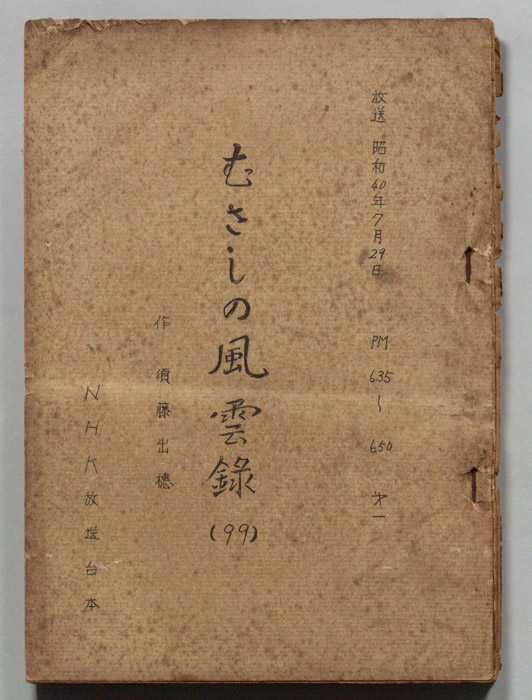 放送 昭和40年7月29日 PM 635～650 才一
むさしの風雲録(99)
作 須藤出穂
NHK放送台本